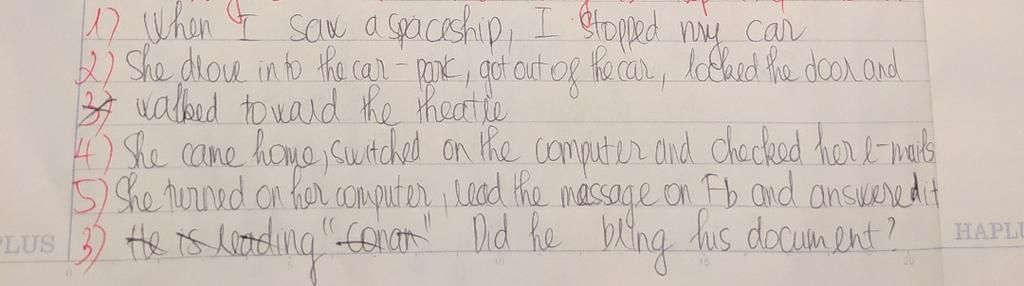 1) When I saw a spaceship, I stopped my car
2) She drove into the car-park, got out of the car, locked the door and
3) walked toward the theatre
4) She came home, switched on the computer and checked her e-mails
5) She turned on her computer, read the massage on Fb and answered it
3) He is reading "Conan" Did he bring his document?
PLUS
HAPLU